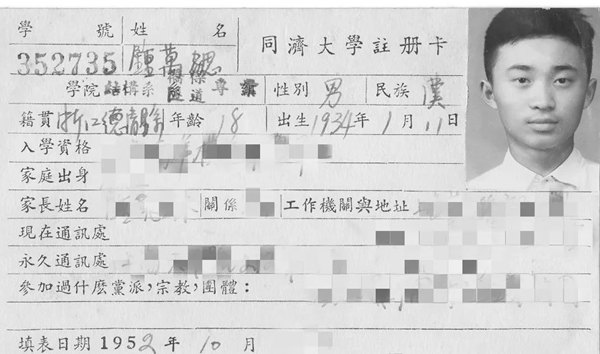 學 號 姓 名
352735 鍾萬勰
同濟大學註册卡
學院結構系橋樑隧道專業 性別 男 民族 漢
籍貫 浙江德清縣 年齡 18 出生 1934 年 1 月 11 日
入學資格
家庭出身
家長姓名 關係 工作機關與地址
現在通訊處
永久通訊處
參加過什麽黨派,宗教,團體:
填表日期 1952 年 10 月